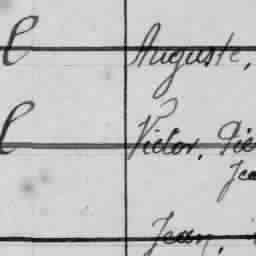 C Auguste,
C Victor, Pie
Jea
Jean,